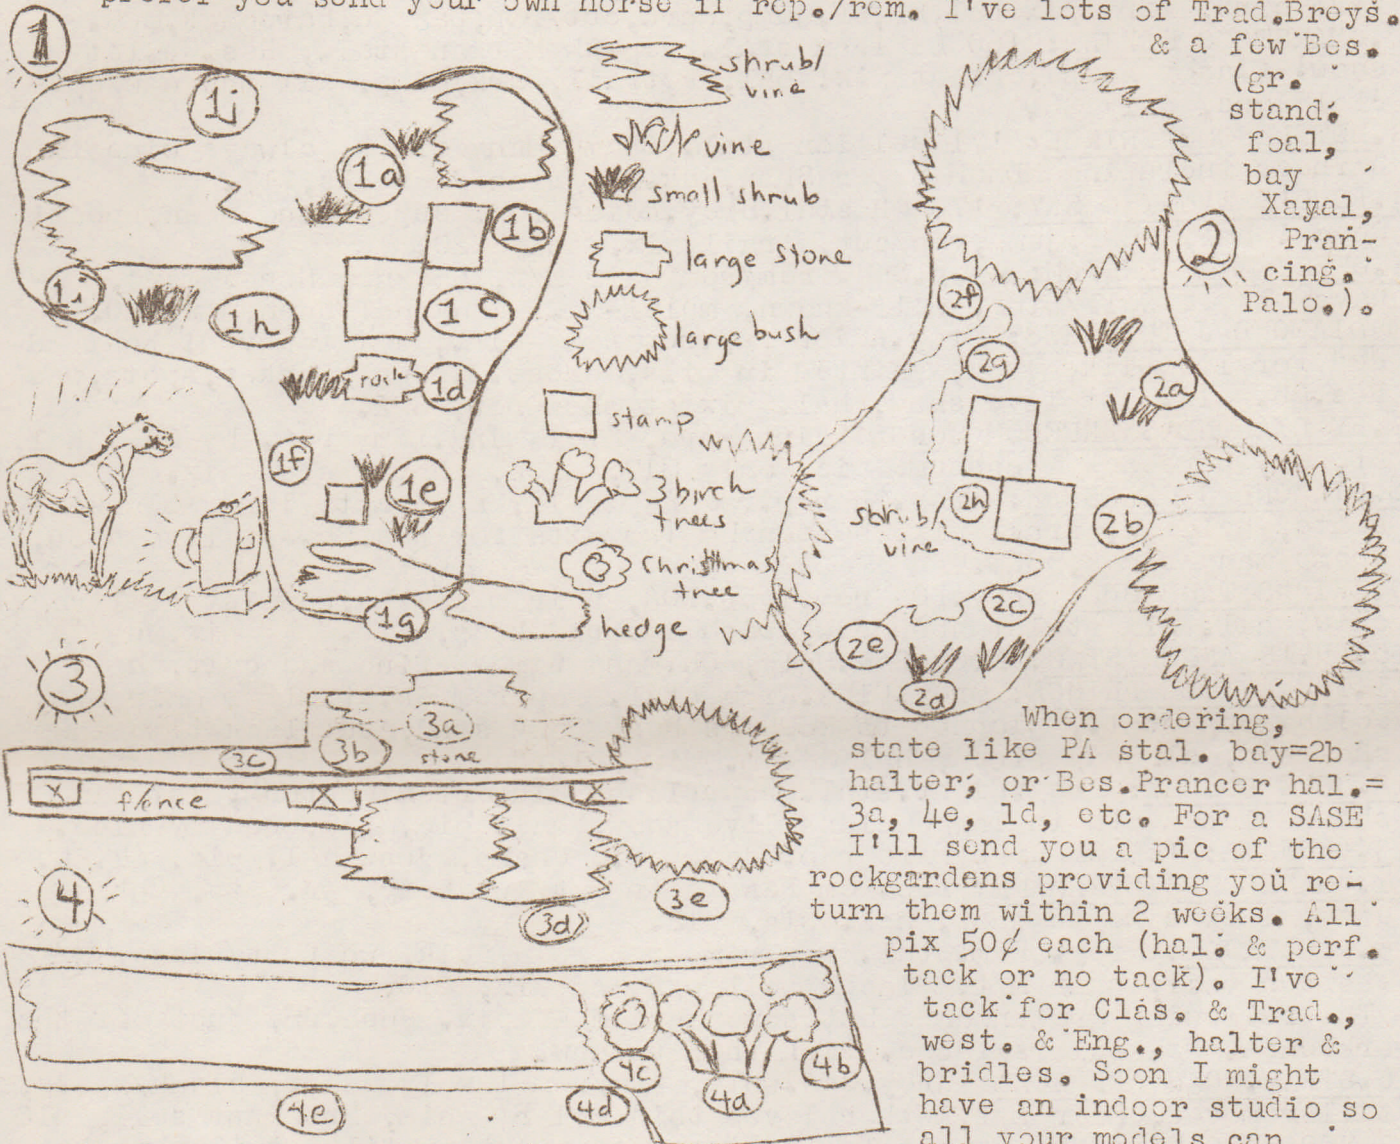 prefer you send your own horse if rep./rem. I've lots of Trad.Breys.
& a few Bes.
(gr.
stand.
foal,
bay
Xayal,
Pran-
cing.
Palo.).
1
1j
1a
1b
1i
1h
1c
rock
1d
1f
1e
1g
shrub/
vine
vine
small shrub
large stone
large bush
stamp
3 birch
trees
christmas
tree
hedge
2
2f
2g
2a
2h
2b
shrub/
vine
2c
2e
2d
3
3a
3b
stone
3c
x
fence
X
X
3d
3e
4
4c
4b
4a
4d
4e
When ordering,
state like PA stal. bay=2b
halter, or Bes.Prancer hal.=
3a, 4e, 1d, etc. For a SASE
I'll send you a pic of the
rockgardens providing you re-
turn them within 2 weeks. All
pix 50¢ each (hal. & perf.
tack or no tack). I've
tack for Clas. & Trad.,
west. & Eng., halter &
bridles. Soon I might
have an indoor studio so
all your models can